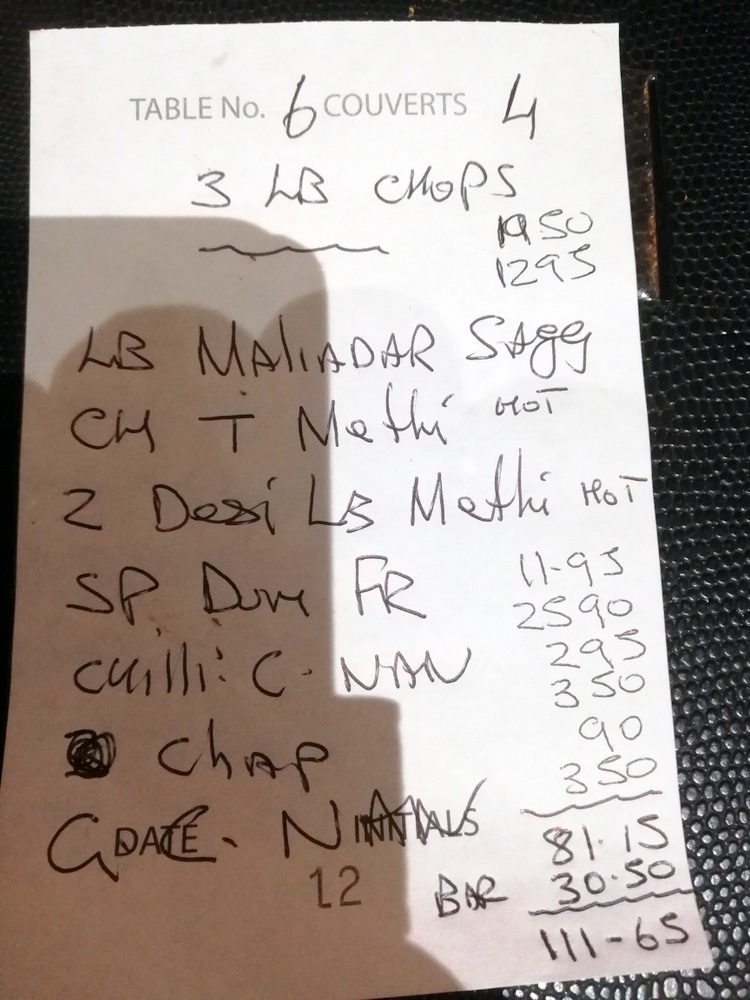 TABLE No. 6 COUVERTS 4
3 LB CHOPS
1950
1295
LB Sagg
CH T Methi HOT
2 Desi LB Methi HOT
11-95
SP FR
2590
295
Chilli C- NAN
350
90
Chap
350
G DATE C- N INITIALS
81.15
12
BAR 30.50
111-65